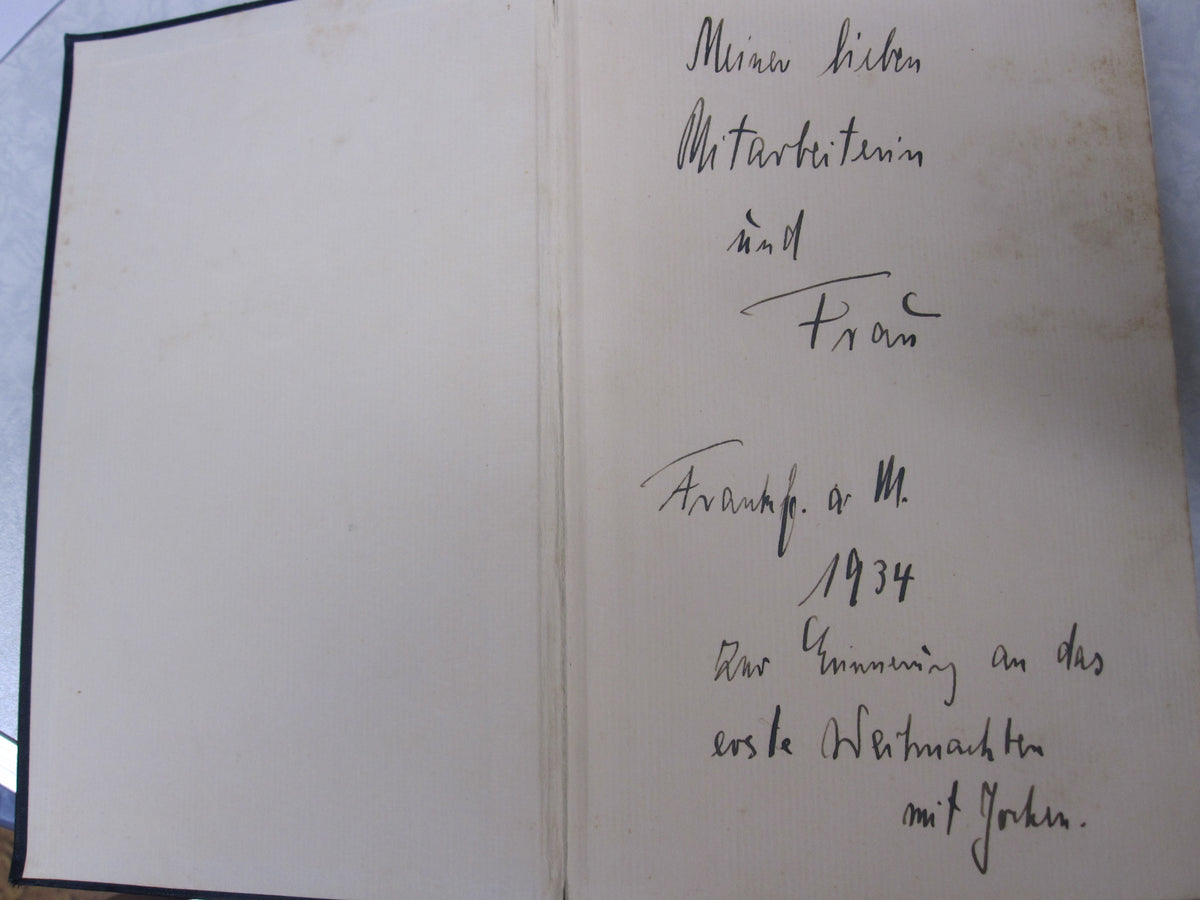 Meiner lieben
Mitarbeiterin
und
Frau
Frankf. a. M.
1934
Zur Erinnerung an das
erste Weihnachten
mit Jochen.